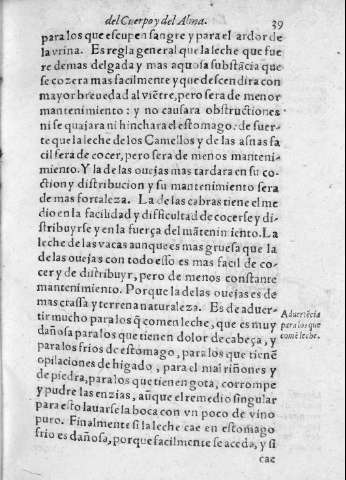 del Cuerpo y del Alma. 39
para los que escupen sangre y para el ardor de
la vrina. Es regla general que la leche que fue
re de mas delgada y mas aquosa substãcia que
se cozera mas facilmente y que descendira con
mayor breuedad al viẽtre, pero sera de menor
mantenimiento: y no causara obstructiones
ni se quajara ni hinchara el estomago: de suer-
te que la leche de los Camellos y de las asnas fa
cil sera de cocer, pero sera de menos manteni-
miento. Y la de las ouejas mas tardara en su co-
ction y distribucion y su mantenimiento sera
de mas fortaleza. La de las cabras tiene el me
dio en la facilidad y difficultad de cocerse y di-
stribuyrse y en la fuerça del mãtenimiento. La
leche de las vacas aunque es mas gruesa que la
de las ouejas con todo esso es mas facil de co-
cer y de distribuyr, pero de menos constante
mantenimiento. Porque la de las ouejas es de
mas crassa y terrena naturaleza. Es de aduer-
tir mucho para los q̃ comen leche, que es muy
dañosa para los que tienen dolor de cabeça, y
para los frios de estomago, para los que tienẽ
opilaciones de higado, para el mal riñones y
de piedra, para los que tienen gota, corrompe
y pudre las enzias, aũque el remedio singular
para esto lauarse la boca con vn poco de vino
puro. Finalmente si la leche cae en estomago
frio es dañosa, porque facilmente se aceda, y si
cae
Aduertẽcia
para los que
comẽ leche.